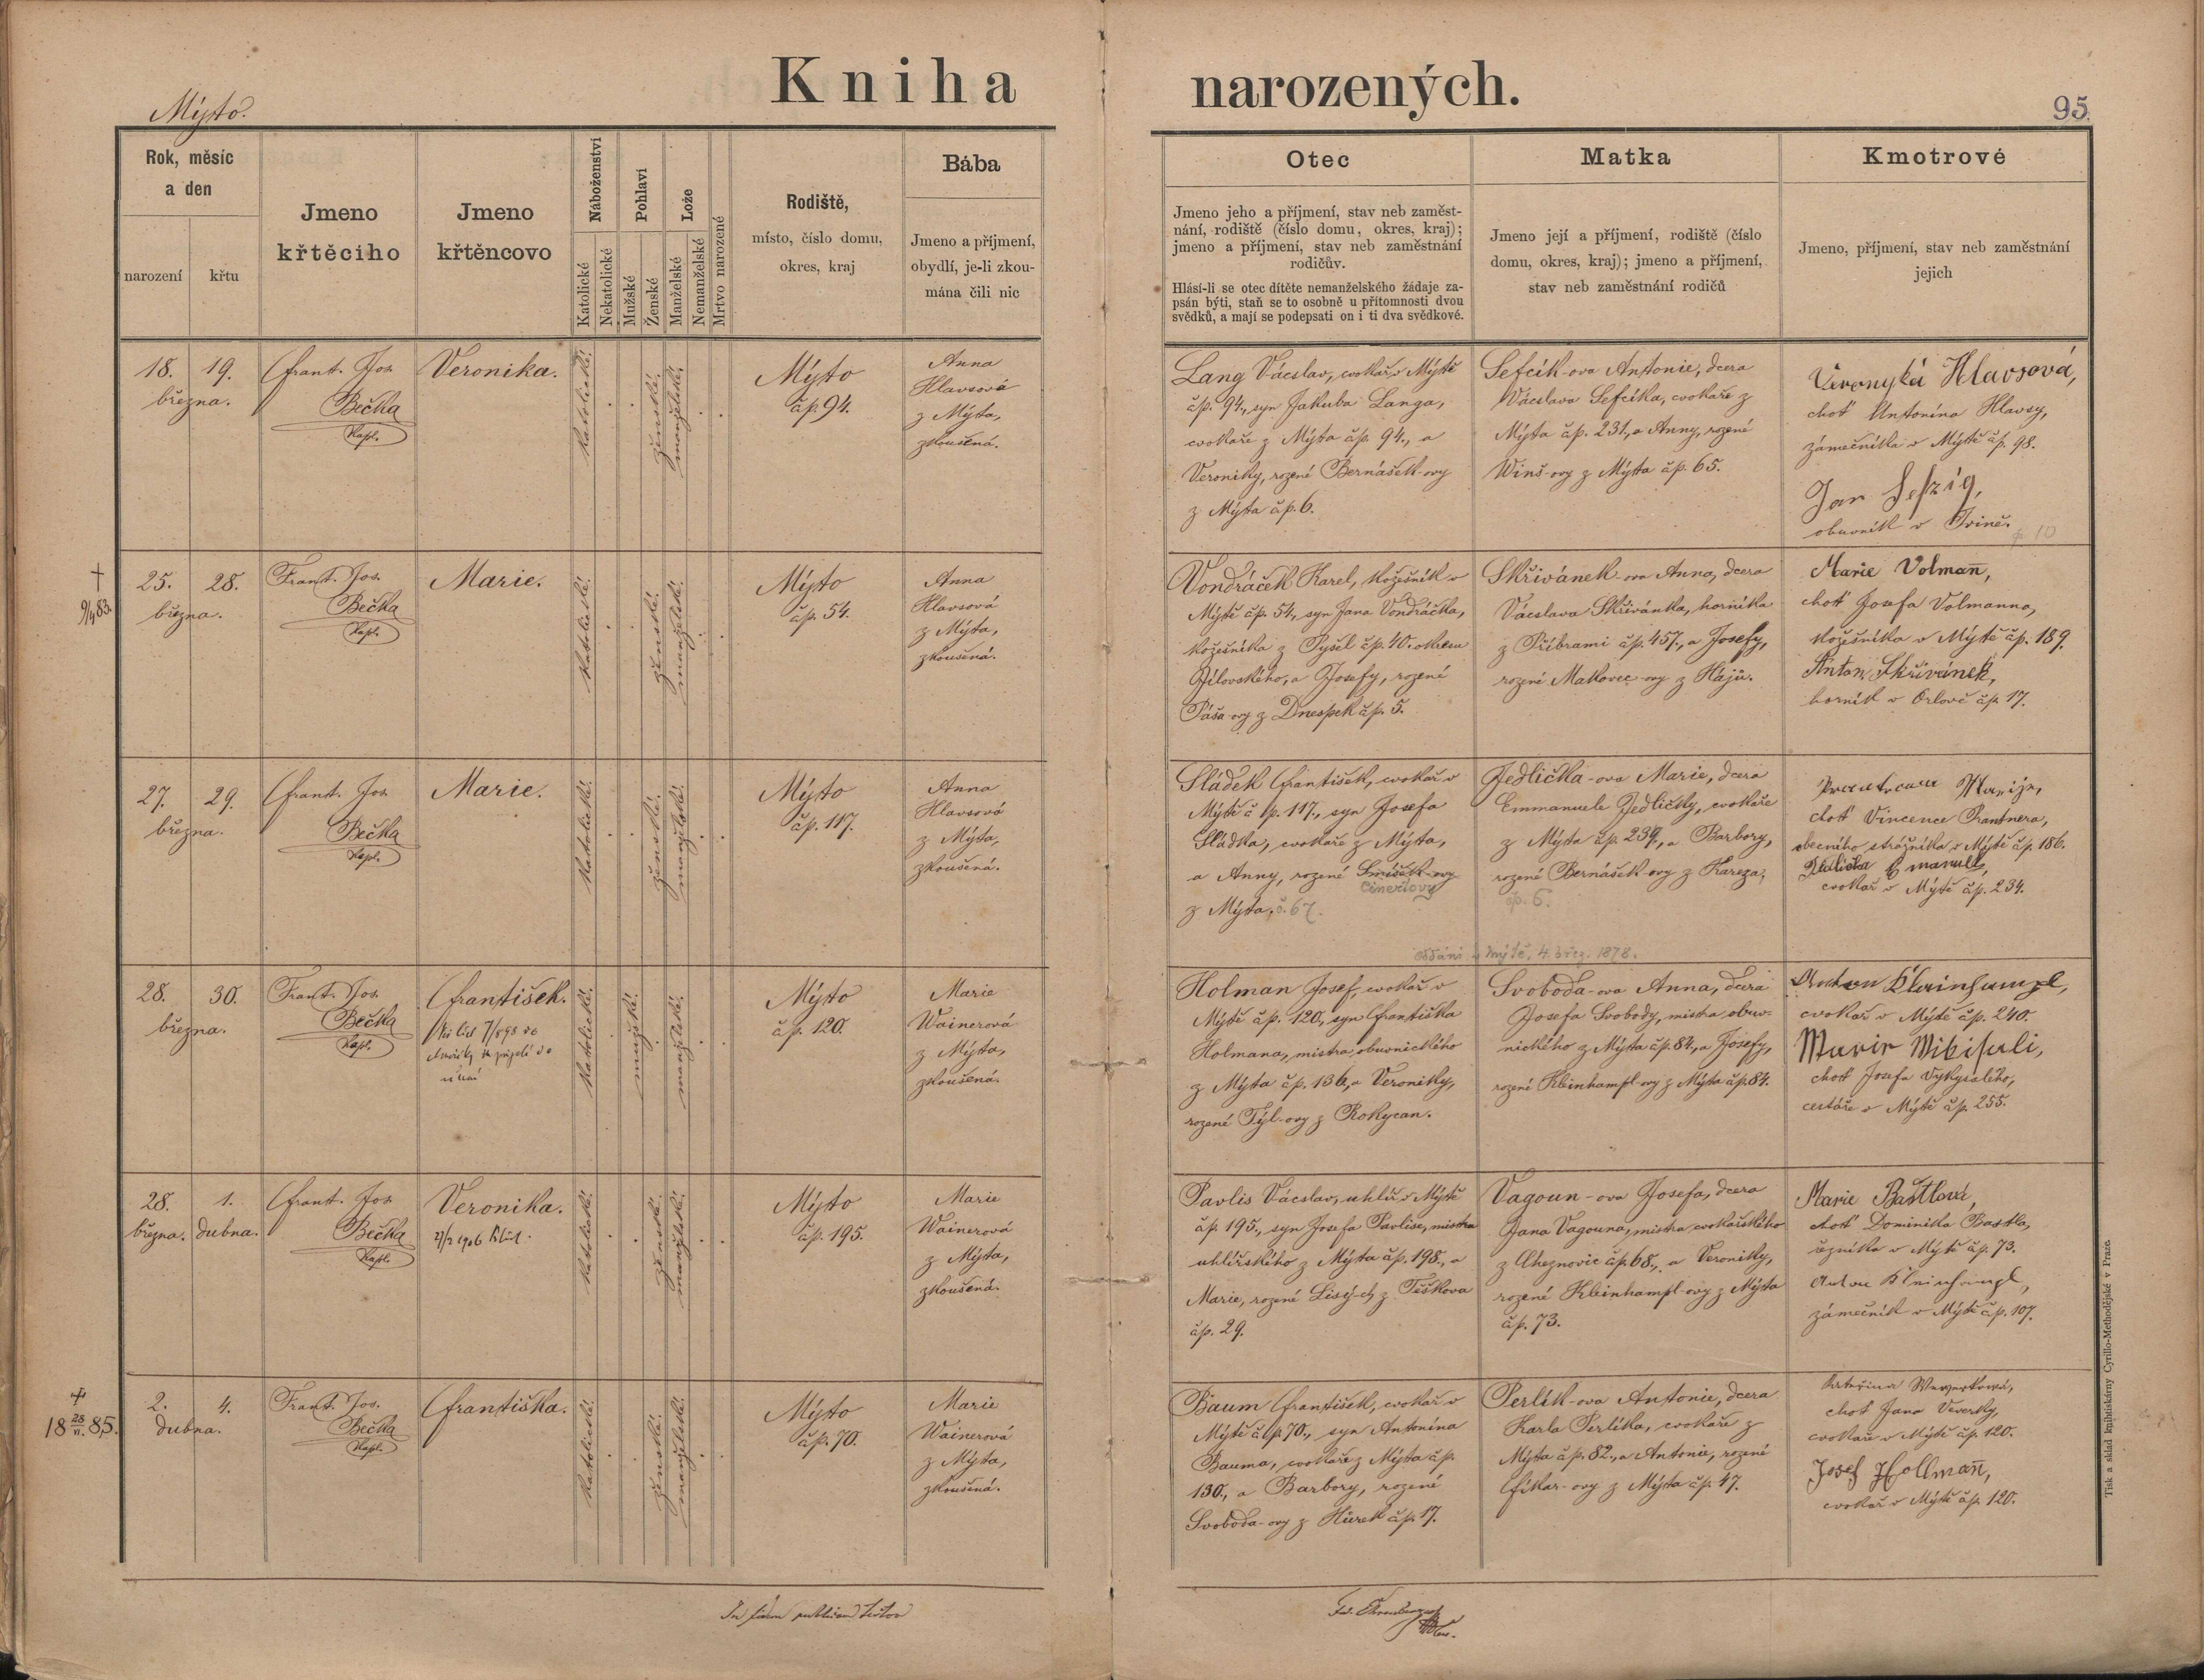 Kniha narozených.
Mýto.
95.
Rok, měsíc
a den
narození
křtu
Jmeno
křtěcího
Jmeno
křtěncovo
Náboženství
Katolické
Nekatolické
Pohlaví
Mužské
Ženské
Lože
Manželské
Nemanželské
Mrtvo narozené
Rodiště,
místo, číslo domu,
okres, kraj
Bába
Jmeno a příjmení,
obydlí, je-li zkou-
mána čili nic
Otec
Jmeno jeho a příjmení, stav neb zaměst-
nání, rodiště (číslo domu, okres, kraj);
jmeno a příjmení, stav neb zaměstnání
rodičův.
Hlásí-li se otec dítěte nemanželského žádaje za-
psán býti, staň se to osobně u přítomnosti dvou
svědků, a mají se podepsati on i ti dva svědkové.
Matka
Jmeno její a příjmení, rodiště (číslo
domu, okres, kraj); jmeno a příjmení,
stav neb zaměstnání rodičů
Kmotrové
Jmeno, příjmení, stav neb zaměstnání
jejich
18. 19.
března.
Frant. Jos.
Bečka
Kapl.
Veronika.
katolické.
ženské.
manželské.
Mýto
čp. 94.
Anna
Hlavsová
z Mýta,
zkoušená.
Lang Václav, cvokař v Mýtě
čp. 94., syn Jakuba Langa,
cvokaře z Mýta čp. 94., a
Veroniky, rozené Bernášek-ovy
z Mýta čp. 6.
Sefčík-ova Antonie, dcera
Václava Sefčíka, cvokaře z
Mýta čp. 231., a Anny, rozené
Winš-ovy z Mýta čp. 65.
Veronyka Hlavsová,
choť Antonína Hlavsy,
zámečníka v Mýtě čp. 98.
Jan
obuvník v
p. 10
†
9/4 83.
25. 28.
března.
Frant. Jos.
Bečka
Kapl.
Marie.
katolické.
ženské.
manželské.
Mýto
čp. 54.
Anna
Hlavsová
z Mýta,
zkoušená.
Vondráček Karel, kožešník v
Mýtě čp. 54., syn Jana Vondráčka,
kožešníka z Pyšel čp. 40. okresu
Jílovského, a Josefy, rozené
Páša-ovy z Dnespek čp. 5.
Skřivánek-ova Anna, dcera
Václava Skřivánka, horníka
z Příbrami čp. 457., a Josefy,
rozené Makovec-ovy z Hájů.
Marie Volman̄,
choť Josefa Volmanna,
kožešníka v Mýtě čp. 189.
Anton Skřivánek,
horník v Orlově čp. 17.
27. 29.
března.
Frant. Jos.
Bečka
Kapl.
Marie.
katolické.
ženské.
manželské.
Mýto
čp. 117.
Anna
Hlavsová
z Mýta,
zkoušená.
Sládek František, cvokař v
Mýtě čp. 117., syn Josefa
Sládka, cvokaře z Mýta,
a Anny, rozené Smíšek-ovy
Cinertovy
z Mýta. č. 67.
Jedlička-ova Marie, dcera
Emmanuele Jedličky, cvokaře
z Mýta čp. 239., a Barbory,
rozené Bernášek-ovy z Kareza,
čp. 6.
oddáni v Mýtě, 4. břez. 1878.
choť Vincence Prantnera,
obecního strážníka v Mýtě čp. 186.
Jedlička Emanuel,
cvokař v Mýtě čp. 234.
28. 30.
března.
Frant. Jos.
Bečka
Kapl.
František.
katolické.
mužské.
manželské.
Mýto
čp. 120.
Marie
Wainerová
z Mýta,
zkoušená.
Holman Josef, cvokař v
Mýtě čp. 120., syn Františka
Holmana, mistra obuvnického
z Mýta čp. 136., a Veroniky,
rozené Týl-ovy z Rokycan.
Svoboda-ova Anna, dcera
Josefa Svobody, mistra obuv-
nického z Mýta čp. 84., a Josefy,
rozené Kleinhampl-ovy z Mýta čp. 84.
Anton Kleinhampl,
cvokař v Mýtě čp. 240.
choť Josefa Vykysalého,
cestáře v Mýtě čp. 255.
28. 1.
března. dubna.
Frant. Jos.
Bečka
Kapl.
Veronika.
katolické.
ženské.
manželské.
Mýto
čp. 195.
Marie
Wainerová
z Mýta,
zkoušená.
Pavlis Václav, uhlíř v Mýtě
čp. 195., syn Josefa Pavlise, mistra
uhlířského z Mýta čp. 198., a
Marie, rozené Lisých z Těškova
čp. 29.
Vagoun-ova Josefa, dcera
Jana Vagouna, mistra cvokařského
z Cheznovic čp. 68., a Veroniky,
rozené Kleinhampl-ovy z Mýta
čp. 73.
Marie Baštlová,
choť Dominika Bastla,
řezníka v Mýtě čp. 73.
Anton Kleinhampl,
zámečník v Mýtě čp. 107.
†
18 28/VI. 85.
2. 4.
dubna.
Frant. Jos.
Bečka
Kapl.
Františka.
katolické.
ženské.
manželské.
Mýto
čp. 70.
Marie
Wainerová
z Mýta,
zkoušená.
Baum František, cvokař v
Mýtě čp. 70., syn Antonína
Bauma, cvokaře z Mýta čp.
130., a Barbory, rozené
Svoboda-ovy z Hůrek čp. 17.
Perlík-ova Antonie, dcera
Karla Perlíka, cvokaře z
Mýta čp. 82., a Antonie, rozené
Fikar-ovy z Mýta čp. 47.
Kateřina Weverková,
choť Jana Veverky,
cvokaře v Mýtě čp. 120.
Josef Hollman̄,
cvokař v Mýtě čp. 120.
Tisk a sklad knihtiskárny Cyrillo-Methodějské v Praze.